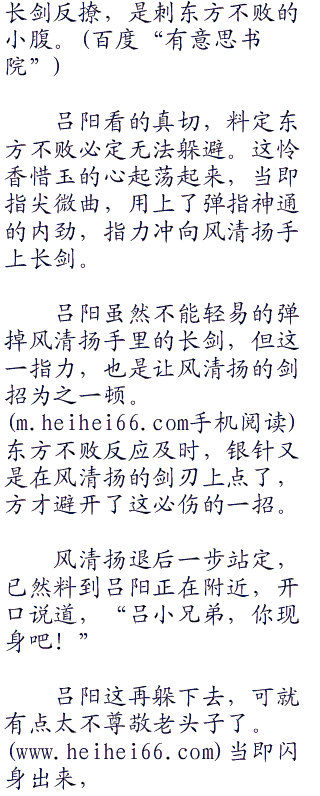 长剑反撩，是刺东方不败的
小腹。(百度“有意思书
院”)
吕阳看的真切，料定东
方不败必定无法躲避。这怜
香惜玉的心起荡起来，当即
指尖微曲，用上了弹指神通
的内劲，指力冲向风清扬手
上长剑。
吕阳虽然不能轻易的弹
掉风清扬手里的长剑，但这
一指力，也是让风清扬的剑
招为之一顿。
(m.heihei66.com手机阅读)
东方不败反应及时，银针又
是在风清扬的剑刃上点了，
方才避开了这必伤的一招。
风清扬退后一步站定，
已然料到吕阳正在附近，开
口说道，“吕小兄弟，你现
身吧！”
吕阳这再躲下去，可就
有点太不尊敬老头子了。
(www.heihei66.com)当即闪
身出来，